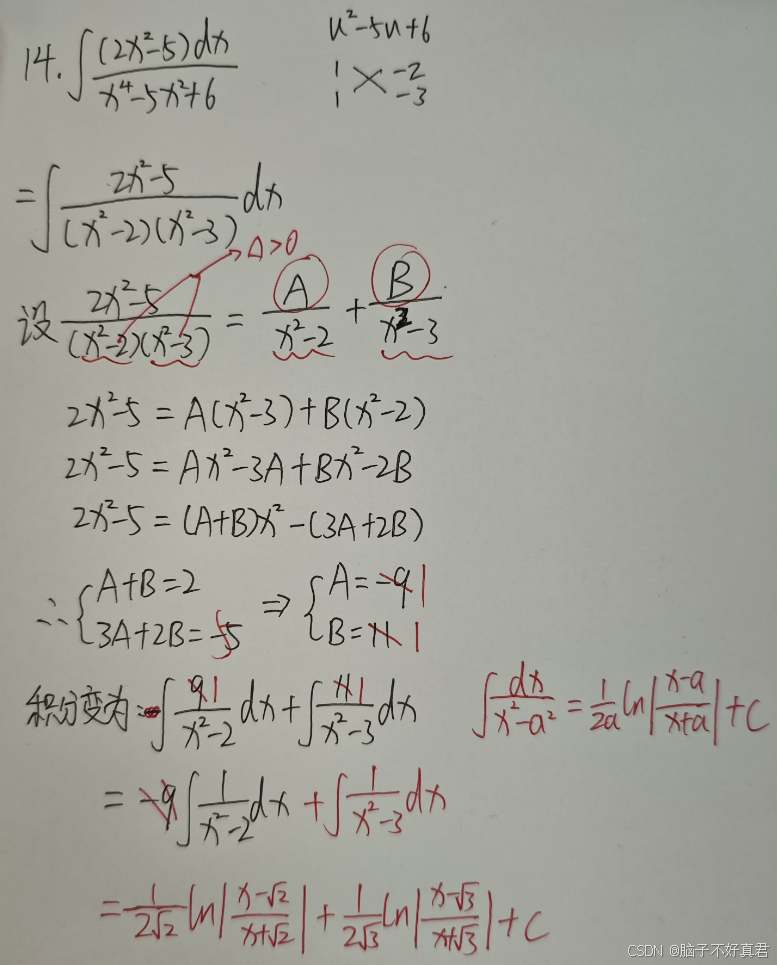 14. ∫(2x²-5)dx/(x⁴-5x²+6)
u²-5u+6
1 -2
1 -3
=∫(2x²-5)/((x²-2)(x²-3))dx
Δ>0
设 (2x²-5)/((x²-2)(x²-3)) = A/(x²-2) + B/(x²-3)
2x²-5=A(x²-3)+B(x²-2)
2x²-5=Ax²-3A+Bx²-2B
2x²-5=(A+B)x²-(3A+2B)
∴{A+B=2 ⇒ {A=-9 1
3A+2B=-5 B=11 1
积分变为:-∫(9 1)/(x²-2)dx+∫(11 1)/(x²-3)dx
∫dx/(x²-a²)=1/(2a) ln|(x-a)/(x+a)|+C
= -9∫1/(x²-2)dx+∫1/(x²-3)dx
=1/(2√2) ln|(x-√2)/(x+√2)|+1/(2√3) ln|(x-√3)/(x+√3)|+C
CSDN @脑子不好真君